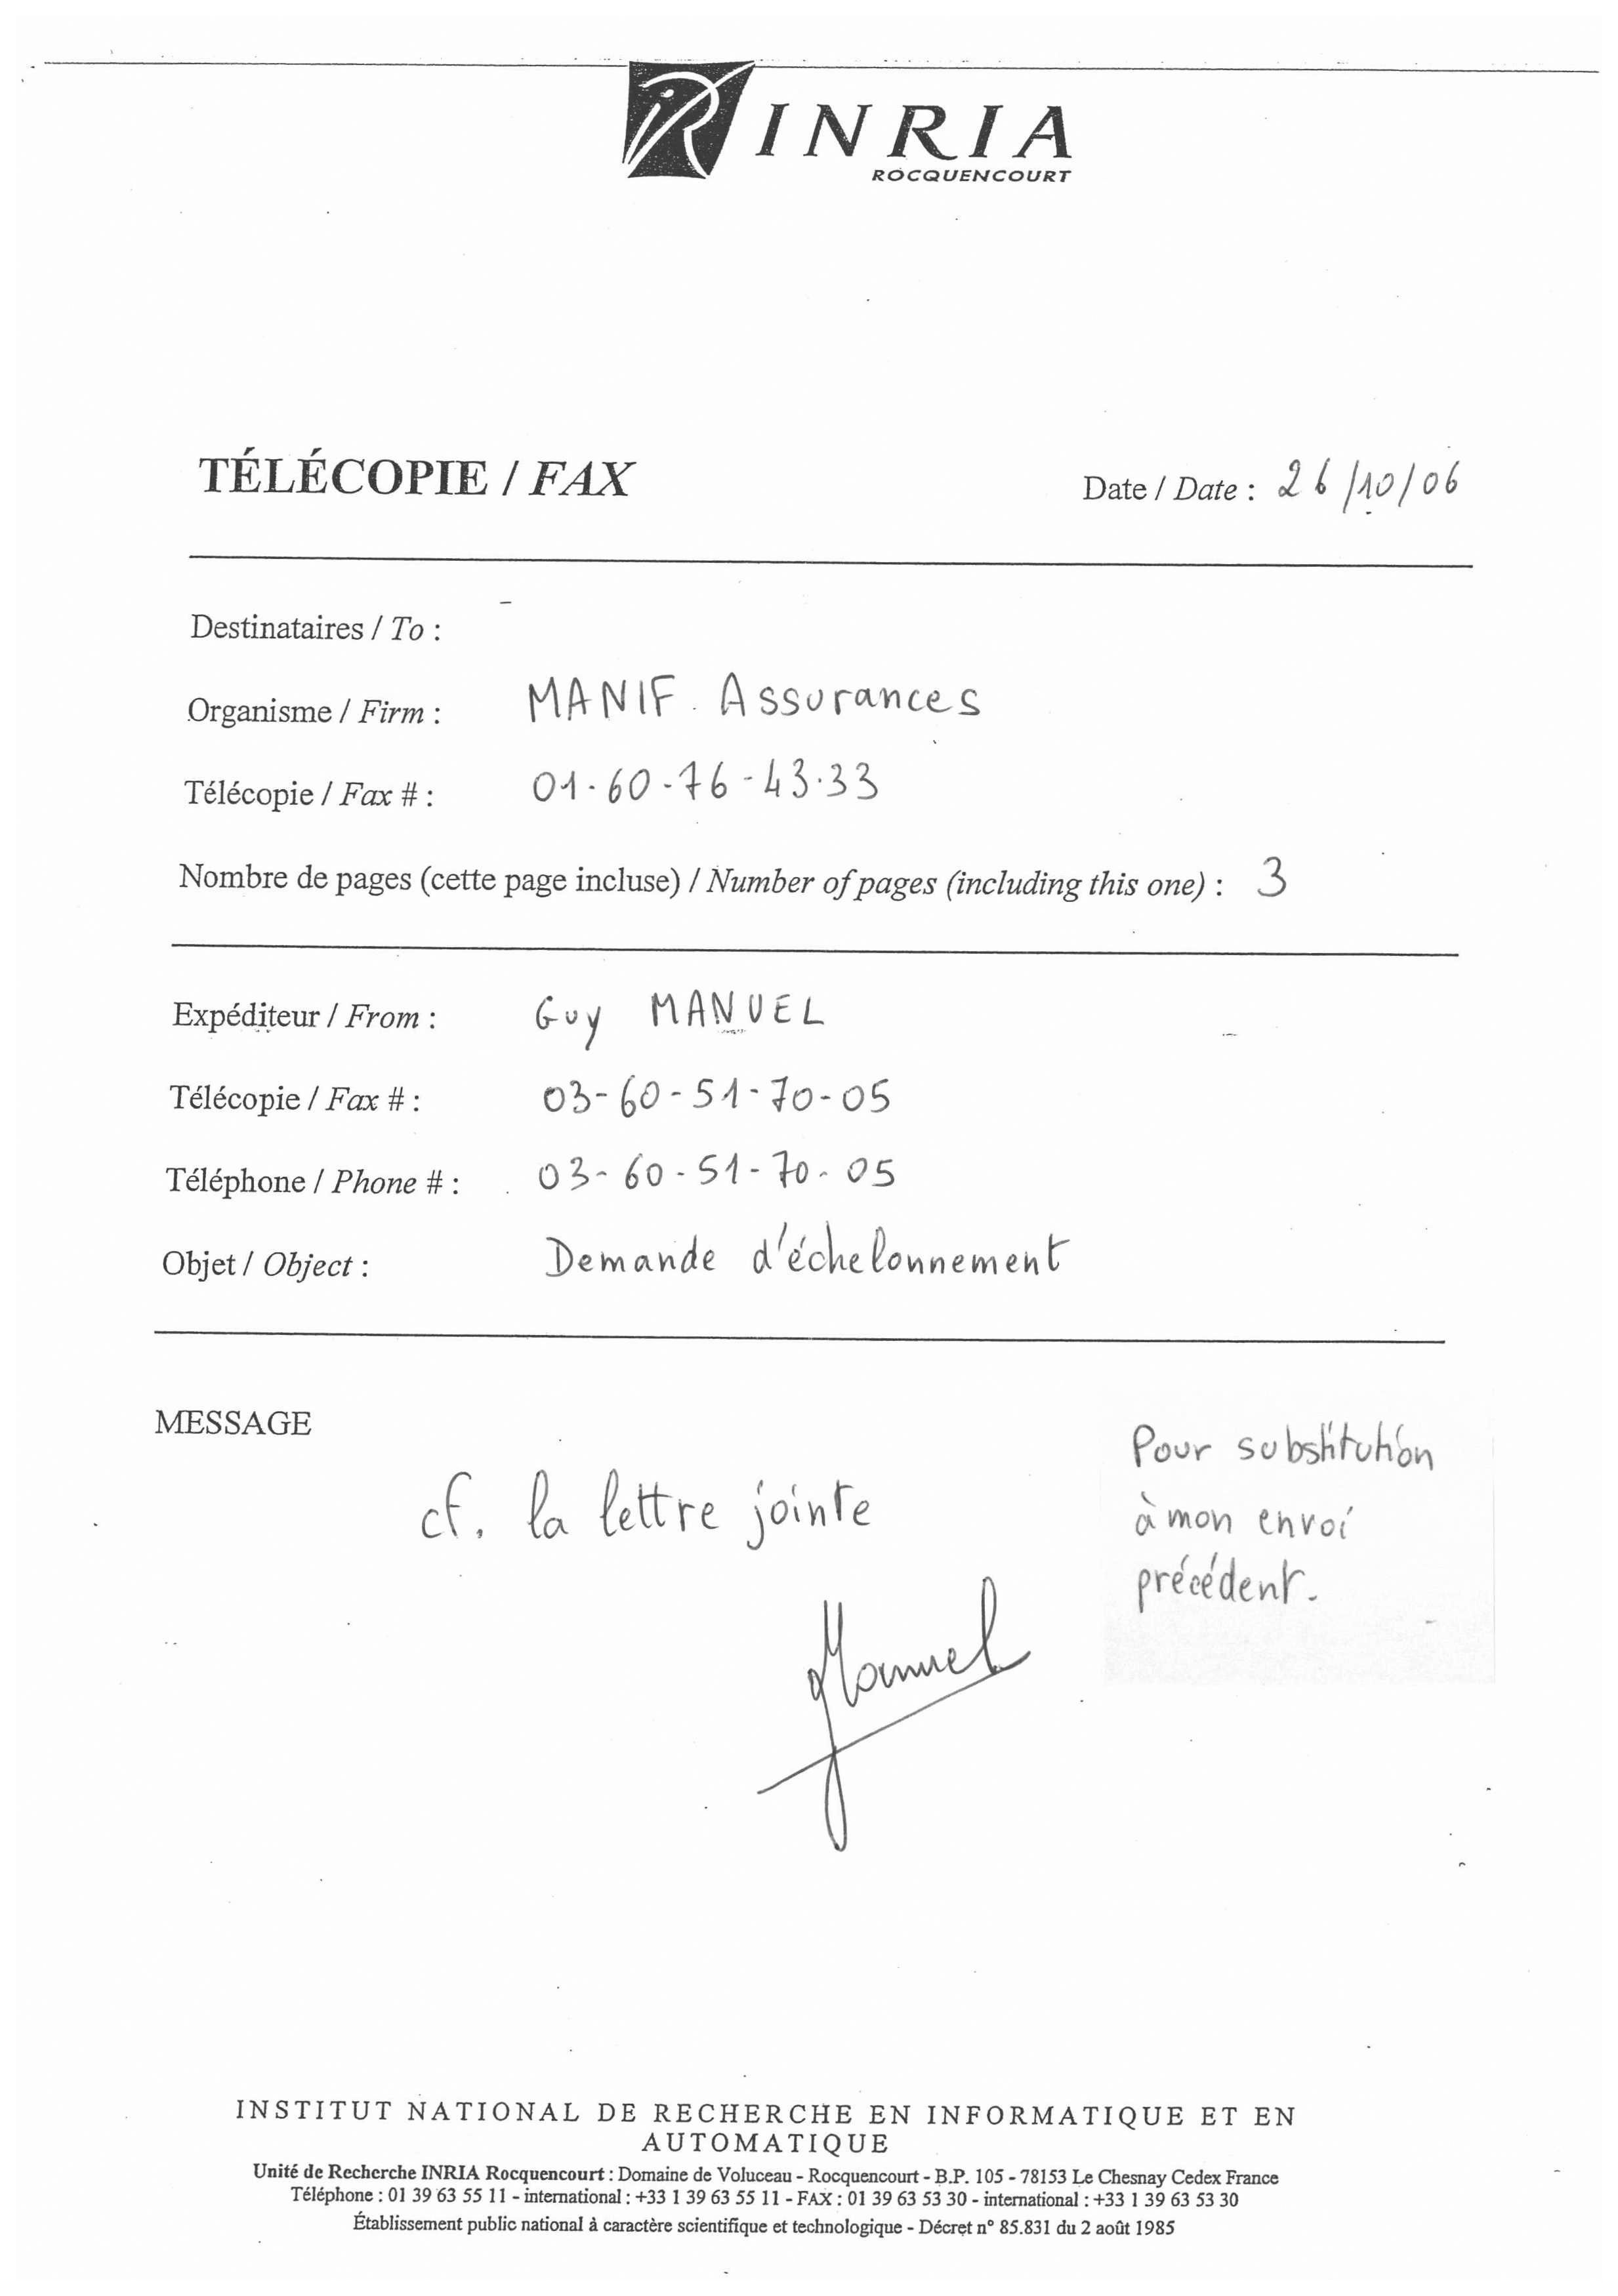 INRIA
ROCQUENCOURT
TÉLÉCOPIE / FAX
Date / Date : 26/10/06
Destinataires / To :
Organisme / Firm : MANIF Assurances
Télécopie / Fax # : 01-60-76-43-33
Nombre de pages (cette page incluse) / Number of pages (including this one) : 3
Expéditeur / From : Guy MANUEL
Télécopie / Fax # : 03-60-51-70-05
Téléphone / Phone # : 03-60-51-70-05
Objet / Object : Demande d'échelonnement
MESSAGE
cf. la lettre jointe
Pour substitution
à mon envoi
précédent.
Manuel
INSTITUT NATIONAL DE RECHERCHE EN INFORMATIQUE ET EN
AUTOMATIQUE
Unité de Recherche INRIA Rocquencourt : Domaine de Voluceau - Rocquencourt - B.P. 105 - 78153 Le Chesnay Cedex France
Téléphone : 01 39 63 55 11 - international : +33 1 39 63 55 11 - FAX : 01 39 63 53 30 - international : +33 1 39 63 53 30
Établissement public national à caractère scientifique et technologique - Décret n° 85.831 du 2 août 1985